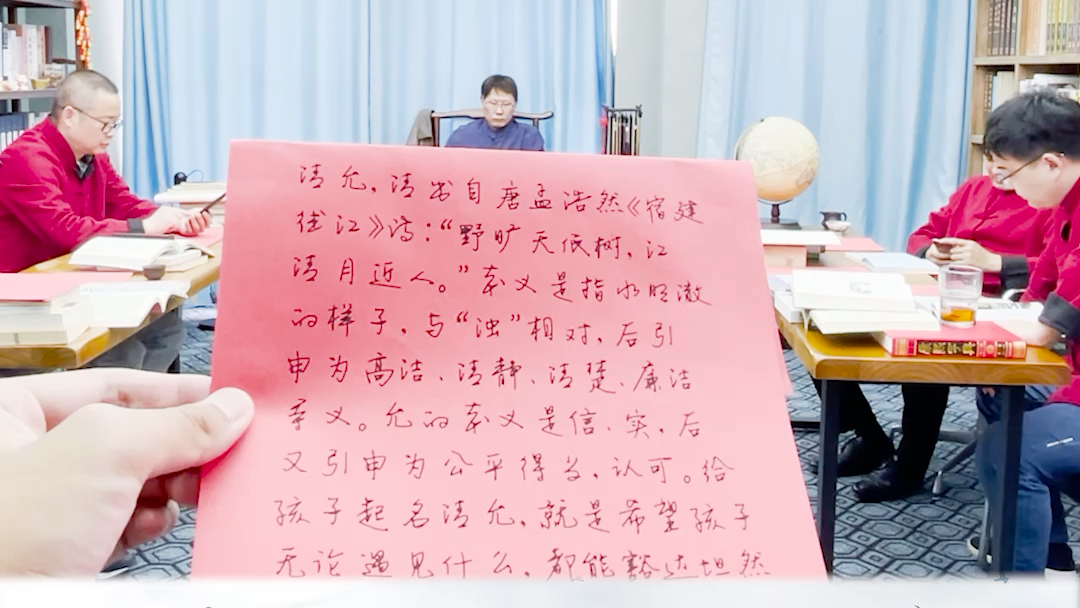 清允，清出自唐孟浩然《宿建
德江》诗：“野旷天低树，江
清月近人。”本义是指水明澈
的样子，与“浊”相对，后引
申为高洁、清静、清楚、廉洁
等义。允的本义是信、实，后
又引申为公平得当、认可。给
孩子起名清允，就是希望孩子
无论遇见什么，都能豁达坦然
康熙字典